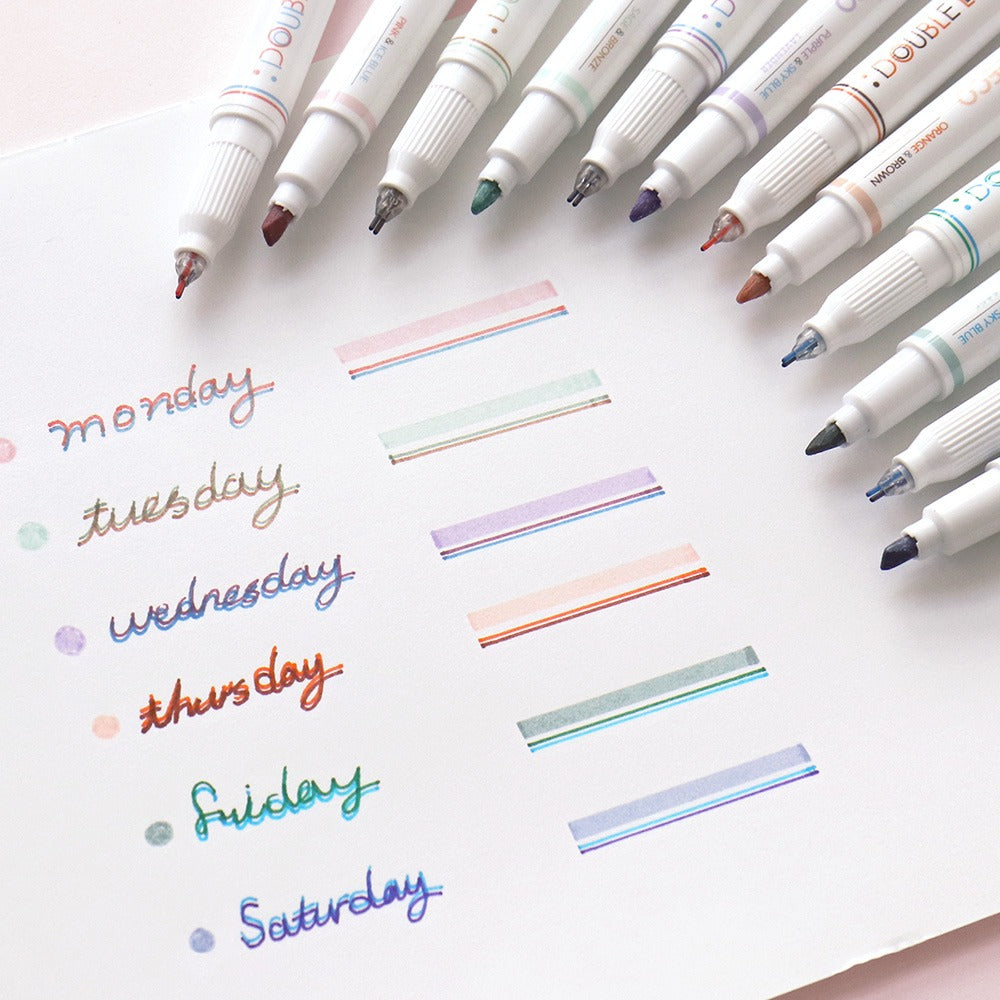 :DOUB
PINK & ICE BLUE
:DOU
SAGE & BRONZE
:D
PURPLE & SKY BLUE
LAVENDER
:DOUBLE
ORANGE & BROWN
:D
SKY BLUE
monday
tuesday
wednesday
thursday
friday
Saturday